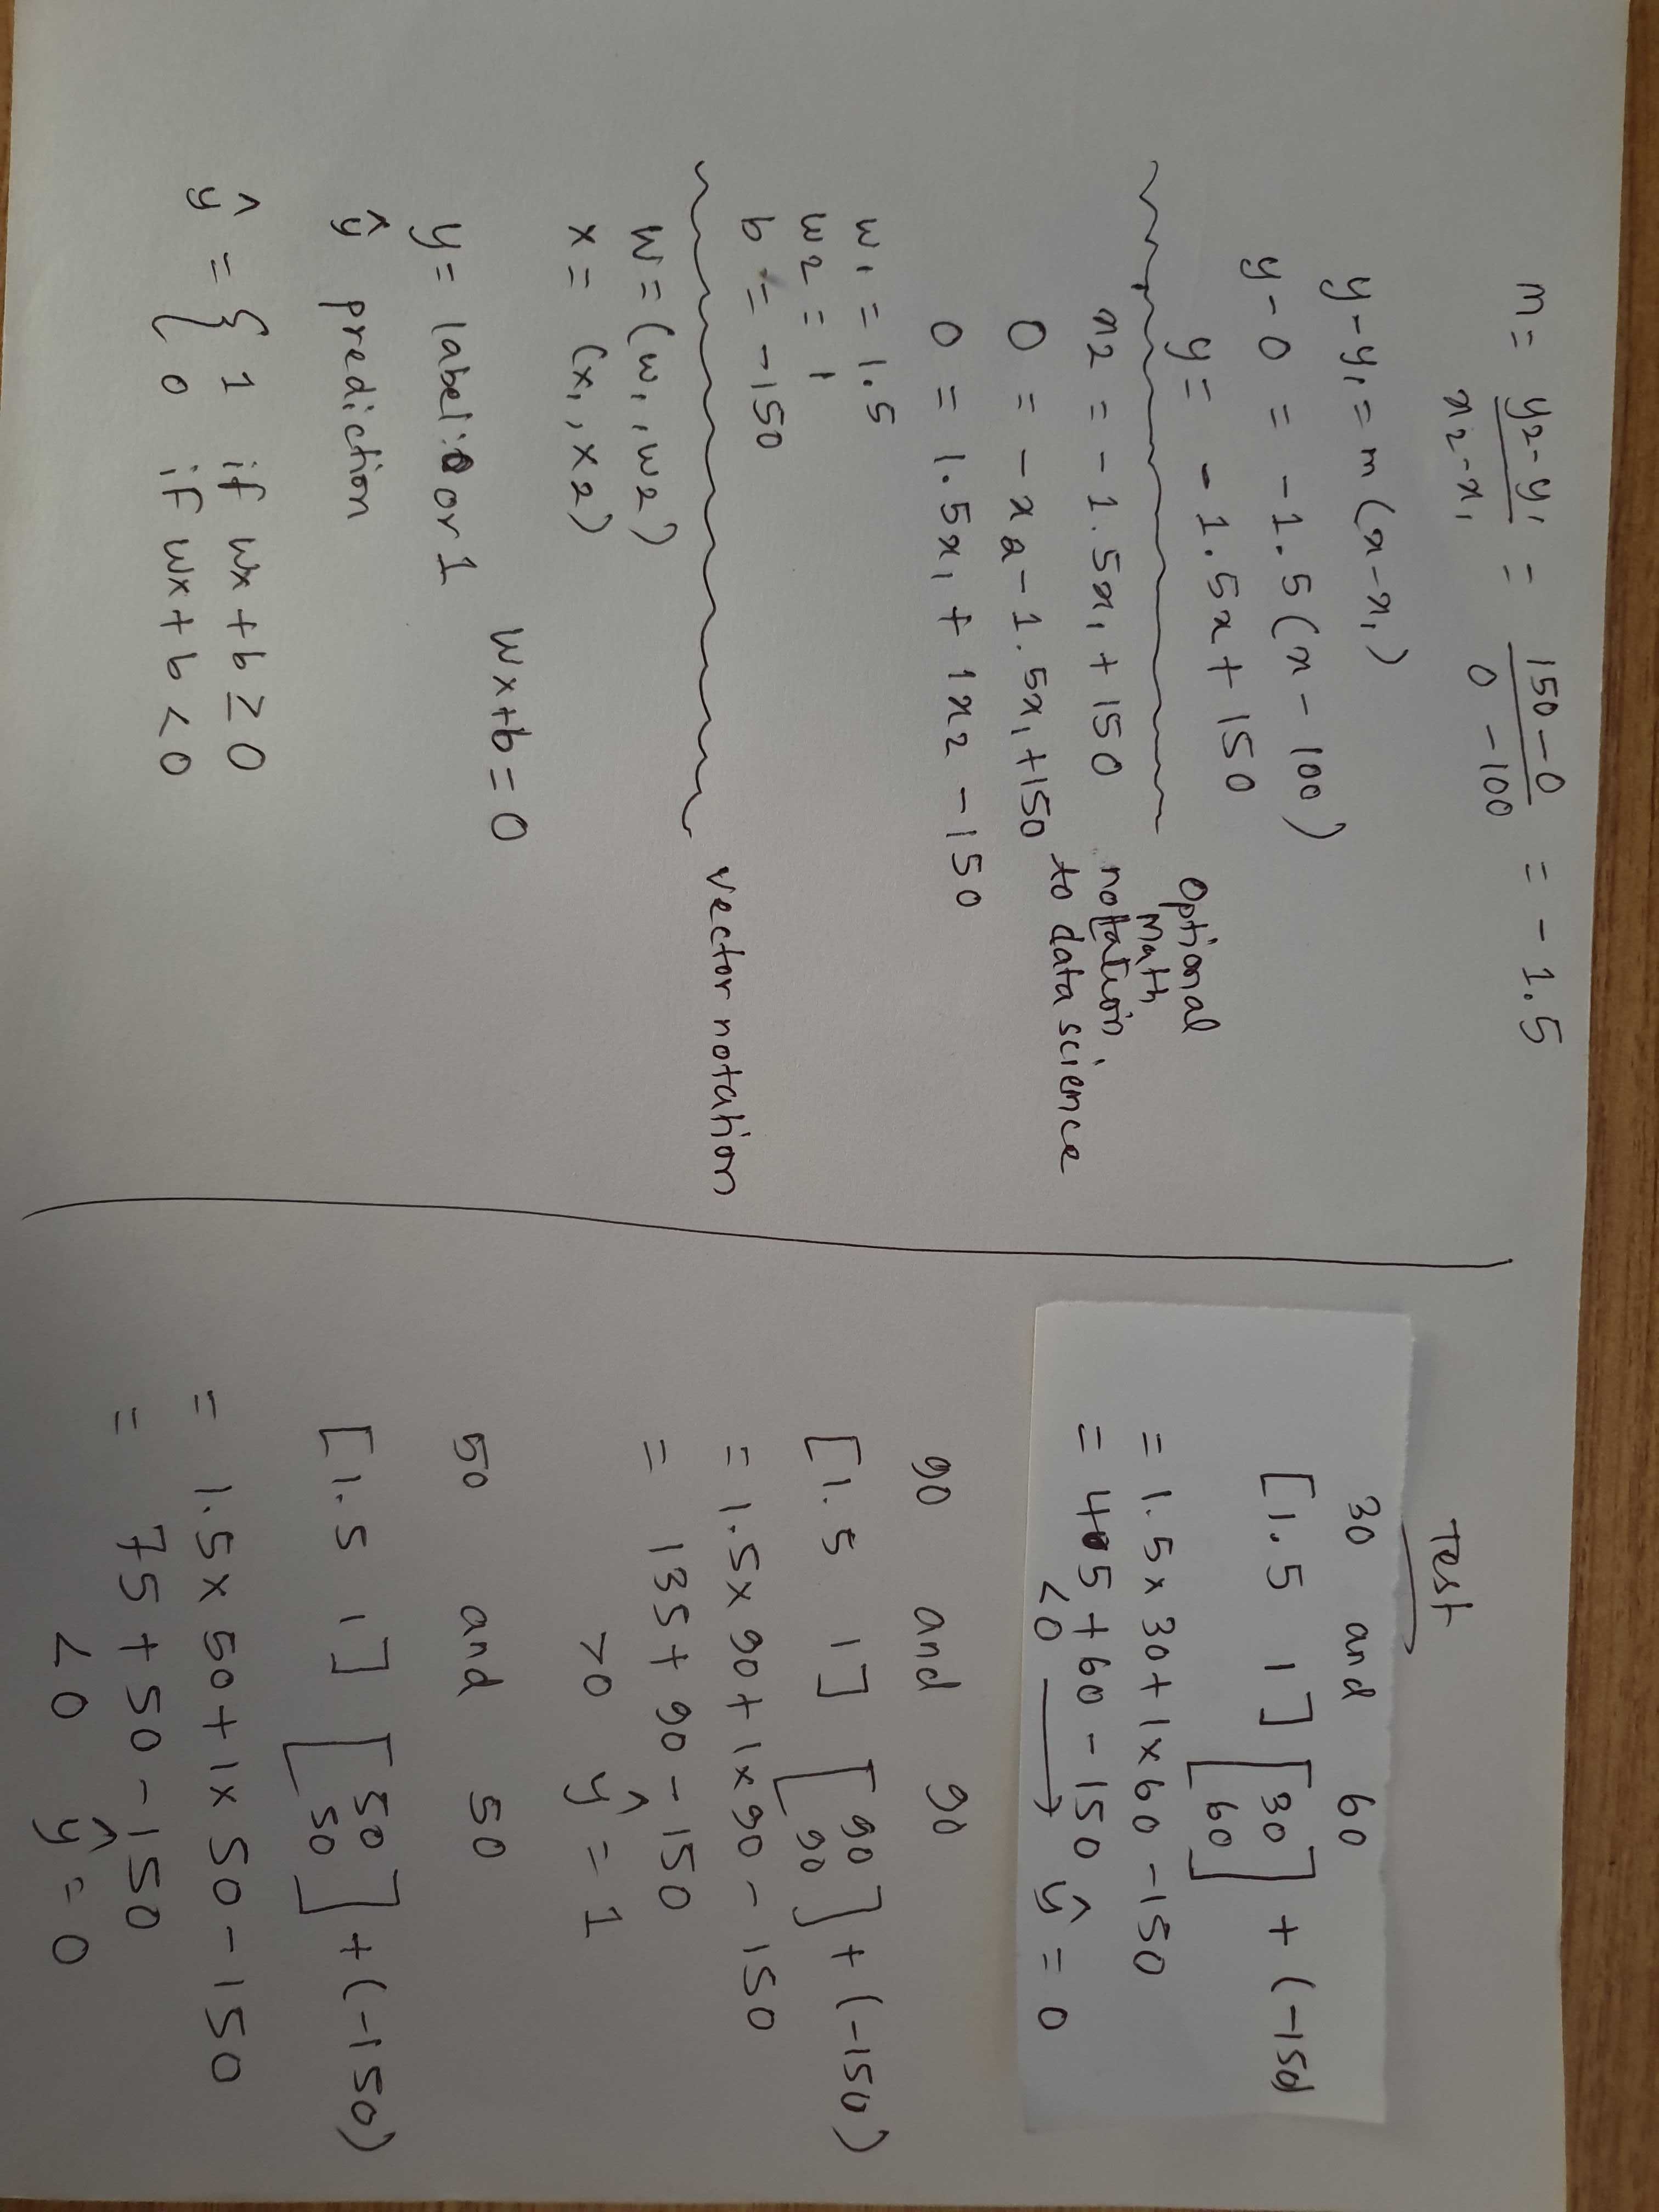 m = y2-y1 / x2-x1 = 150-0 / 0-100 = -1.5
y-y1 = m(x-x1)
y-0 = -1.5(x-100)
y = -1.5x + 150
Optional
Math
notation
to data science
x2 = -1.5x1 + 150
0 = -x2 - 1.5x1 + 150
0 = 1.5x1 + 1x2 - 150
w1 = 1.5
w2 = 1
b = -150
vector notation
W = (w1, w2)
x = (x1, x2)
Wx+b = 0
y = label: 0 or 1
ŷ prediction
ŷ = { 1 if Wx+b ≥ 0
0 if Wx+b < 0
Test
30 and 60
[1.5 1] [30
60] + (-150)
= 1.5 x 30 + 1 x 60 - 150
= 45 + 60 - 150
<0 → ŷ = 0
90 and 90
[1.5 1] [90
90] + (-150)
= 1.5 x 90 + 1 x 90 - 150
= 135 + 90 - 150
>0 ŷ = 1
50 and 50
[1.5 1] [50
50] + (-150)
= 1.5 x 50 + 1 x 50 - 150
= 75 + 50 - 150
<0 ŷ = 0